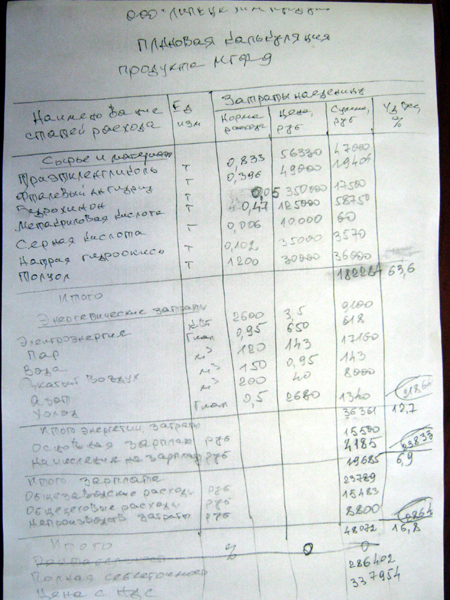 ООО "Липецкхимпродукт
Плановая калькуляция
продукта МГФ-9
Наименование статей расхода Ед изм Затраты на единицу Уд вес, %
Норма расхода Цена, руб Сумма, руб
Сырье и материалы
Триэтиленгликоль т 0,833 56300 47000
Фталевый ангидрид т 0,396 49000 19404
Гидрохинон т 0,05 350000 17500
Метакриловая кислота т 0,47 125000 58750
Серная кислота т 0,006 10.000 60
Натрая гидроокись т 0,102 35000 3570
Толуол 1200 30000 36000
Итого 63,6
Энергетические затраты
Электроэнергия кВт 2600 3,5 9100
Пар Гкал 0,95 650 618
Вода м³ 120 143 17160
Сжатый воздух м³ 150 0,95 143
Азот м³ 200 40 8000
Холод Гкал 0,5 2680 1340
Итого энергетич. затраты 36361 12,7
Основная зарплата руб 15500
Начисления на зарплату руб 4185
Итого зарплата 19685 6,9
Общезаводские расходы руб 23789
Общецеховые расходы руб 15483
Непроизводств затраты руб 8800
Итого 48072 16,8
0 0
Полная себестоимость 286402
Цена с НДС 337954